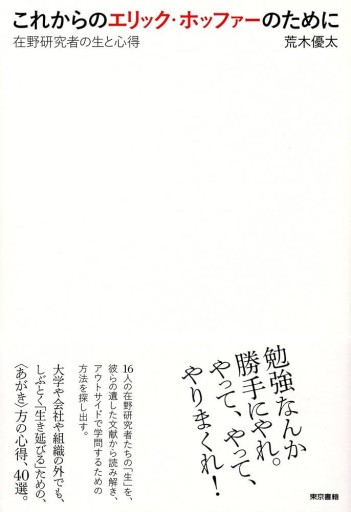 これからのエリック・ホッファーのために
在野研究者の生と心得
荒木優太
勉強なんか
勝手にやれ。
やって、やって、
やりまくれ！
16人の在野研究者たちの「生」を、
彼らの遺した文献から読み解き、
アウトサイドで学問するための
方法を探し出す。
大学や会社や組織の外でも、
しぶとく「生き延びる」ための、
〈あがき〉方の心得、40選。
東京書籍